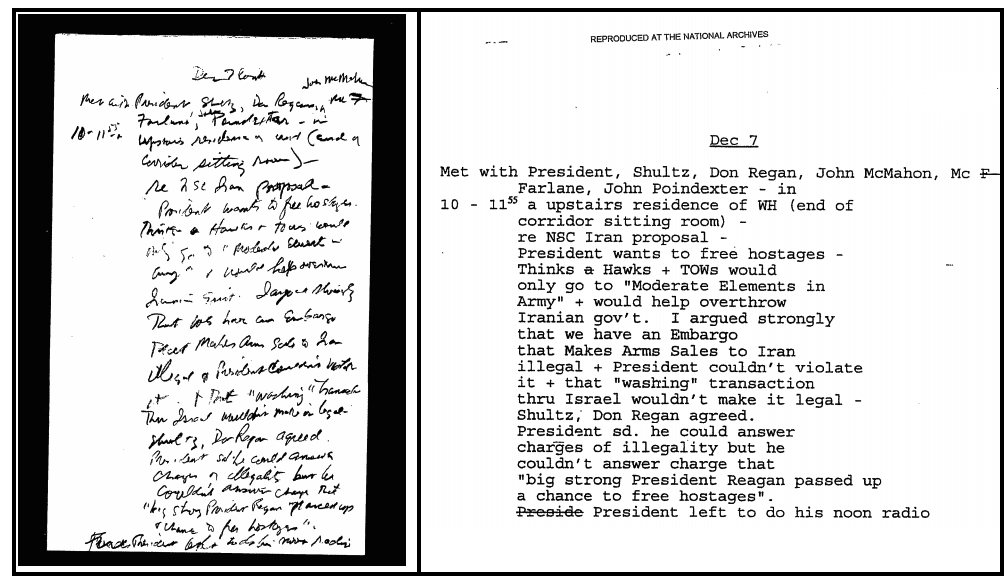 Dec 7 Cont
John McMahon
Met with President Shultz, Don Regan, Mc F
Farlane, John Poindexter - in
10 - 11⁵⁵ a upstairs residence of WH (end of
corridor sitting room) -
re NSC Iran proposal -
President wants to free hostages.
Thinks a Hawks + TOWs would
only go to "Moderate Elements in
Army" + would help overthrow
Iranian Gov't. I argued strongly
that we have an Embargo
that Makes Arms Sales to Iran
illegal + President couldn't violate
it + that "washing" transaction
thru Israel wouldn't make it legal -
Shultz, Don Regan agreed.
President sd. he could answer
charges of illegality but he
couldn't answer charge that
"big strong President Reagan passed up
a chance to free hostages".
Preside President left to do his noon radio
REPRODUCED AT THE NATIONAL ARCHIVES
Dec 7
Met with President, Shultz, Don Regan, John McMahon, Mc F
Farlane, John Poindexter - in
10 - 11⁵⁵ a upstairs residence of WH (end of
corridor sitting room) -
re NSC Iran proposal -
President wants to free hostages -
Thinks a Hawks + TOWs would
only go to "Moderate Elements in
Army" + would help overthrow
Iranian gov't. I argued strongly
that we have an Embargo
that Makes Arms Sales to Iran
illegal + President couldn't violate
it + that "washing" transaction
thru Israel wouldn't make it legal -
Shultz, Don Regan agreed.
President sd. he could answer
charges of illegality but he
couldn't answer charge that
"big strong President Reagan passed up
a chance to free hostages".
Preside President left to do his noon radio